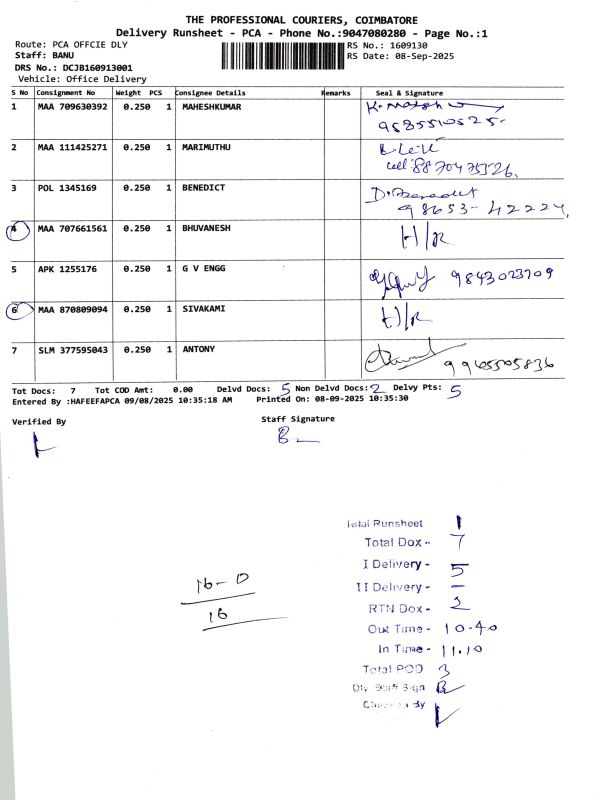 THE PROFESSIONAL COURIERS, COIMBATORE
Delivery Runsheet - PCA - Phone No.:9047080280 - Page No.:1
Route: PCA OFFCIE DLY
RS No.: 1609130
Staff: BANU
RS Date: 08-Sep-2025
DRS No.: DCJB160913001
Vehicle: Office Delivery
S No Consignment No Weight PCS Consignee Details Remarks Seal & Signature
1 MAA 709630392 0.250 1 MAHESHKUMAR
9585510525-
2 MAA 111425271 0.250 1 MARIMUTHU
cell: 8870475526.
3 POL 1345169 0.250 1 BENEDICT
98653-42224,
4 MAA 707661561 0.250 1 BHUVANESH H/R
5 APK 1255176 0.250 1 G V ENGG 9843023709
6 MAA 870809094 0.250 1 SIVAKAMI H/R
7 SLM 377595043 0.250 1 ANTONY
Tot Docs: 7 Tot COD Amt: 0.00 Delvd Docs: 5 Non Delvd Docs: 2 Delvy Pts: 5
Entered By :HAFEEFAPCA 09/08/2025 10:35:18 AM Printed On: 08-09-2025 10:35:30
Verified By Staff Signature
Total Runsheet 1
Total Dox - 7
I Delivery - 5
II Delivery - –
RTN Dox - 2
Out Time - 10-40
In Time - 11.10
Total POD 3
Dly Staff Sign
Checked By
16-0
16